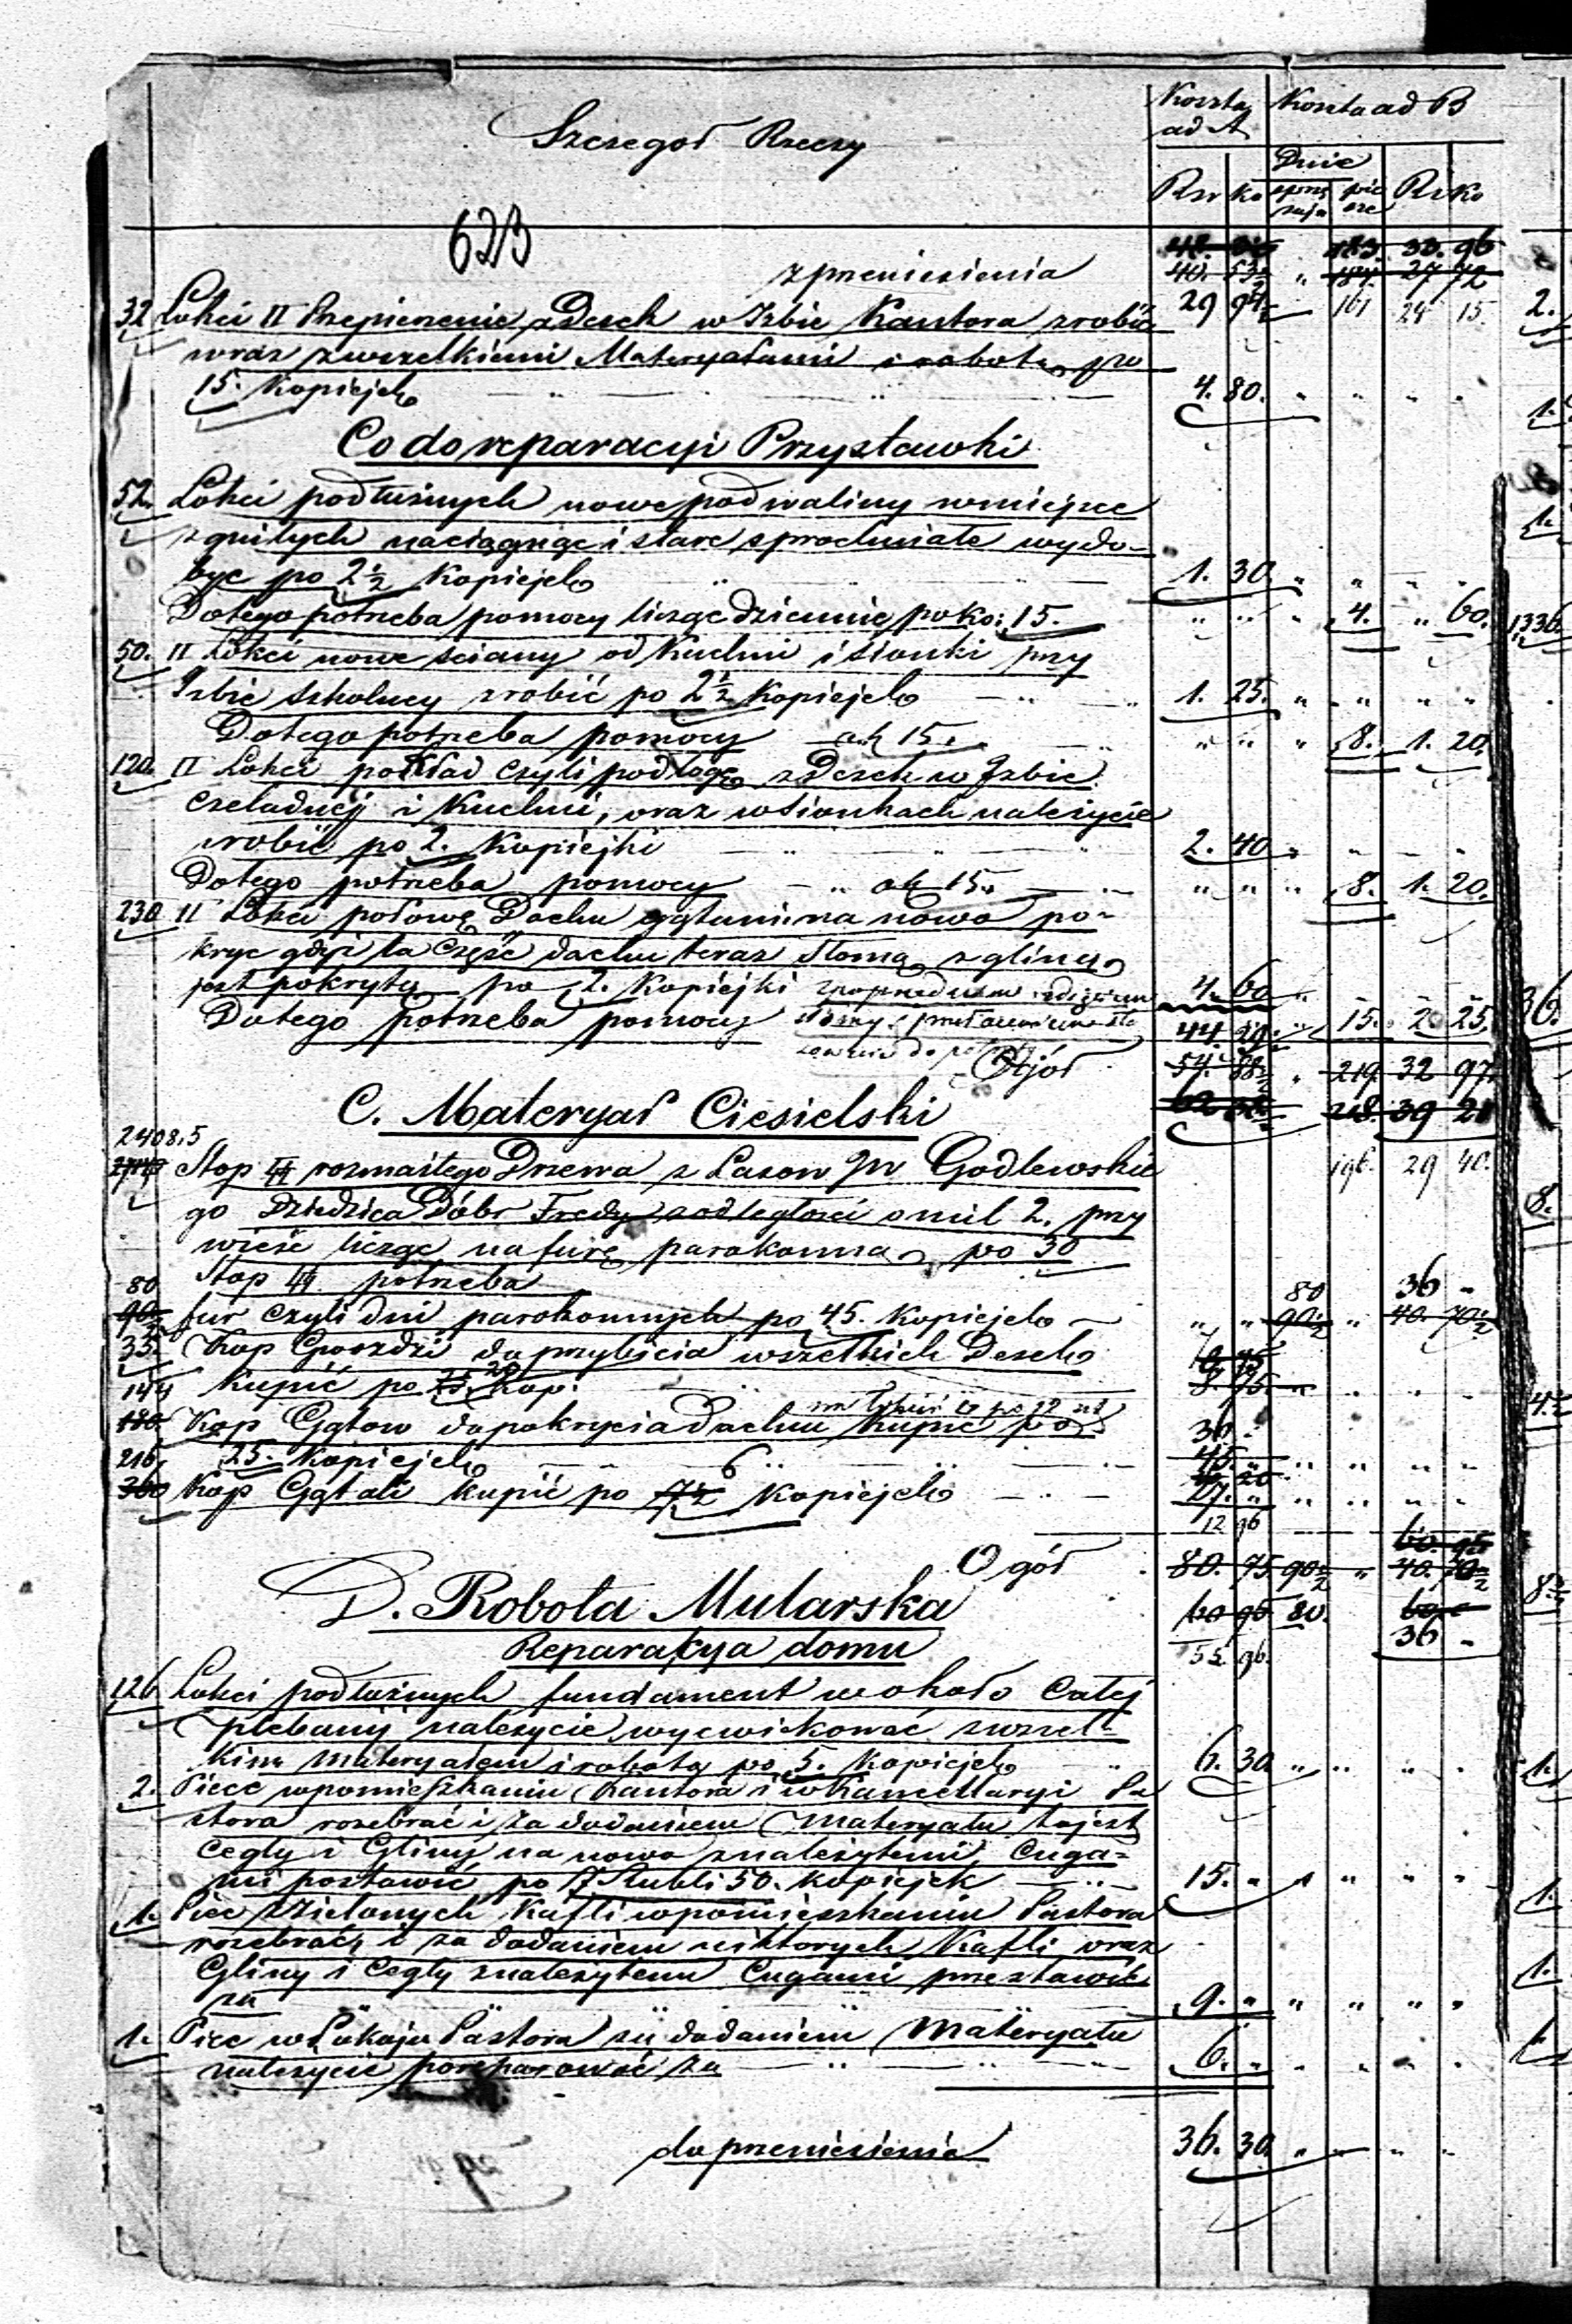 Szczegoł Rzeczy
Koszta ad A
Koszta ad B
Dnie
Rsr ko sprzężaju piesze Rs ko
623
z przeniesienia
40. 53½ " 184. 27 72
29 94½ 161 24 15.
32 Łokci II Przepierzenie z Desek w Izbie Kantora zrobić
wraz z wszelkiemi Materyałami i robotą po
15. Kopiejek 4. 80. " " " "
Co do reparacyi Przystawki
52. Łokci podłużnych nowe podwaliny w miejsce
zgniłych naciągnąc i stare sprochniałe wydo-
byc po 2½ Kopiejek 1. 30. " " " "
Do tego potrzeba pomocy licząc dziennie po Ko: 15. " " " 4. " 60.
50. II Łokci nowe ściany od Kuchni i sionki przy
Izbie Szkolney zrobić po 2½ Kopiejek 1. 25. " " " "
Do tego potrzeba pomocy ah 15. " " " 8. 1. 20.
120. II Łokci pokład czyli podłogę z Desek w Izbie
Czeladnej i Kuchni, oraz w Sionkach należycie
zrobić po 2. Kopiejki 2. 40 " " " "
Do tego potrzeba pomocy ah 15. " " " 8. 1. 20.
230 II Łokci połowę Dachu gątami na nowo po-
kryc gdyż ta część dachu teraz słomą z gliną
jest pokryta po 2. Kopiejki 4. 60 "
Do tego potrzeba pomocy 15. 2 25.
44. 29.
Ogół 54. 88½ " 219. 32 97.
62 248. 39 21
C. Materyał Ciesielski
196. 29 40.
2408,5
Stop II rozmaitego Drzewa z Lasow JW Godlewskie
go Dziedzica Dóbr Fredy z odległości o mil 2. przy
wieść licząc na furę parokonną po 30
Stop II potrzeba
80 80 36 -
90½ fur czyli dni parokonnych po 45. Kopiejek " " 90½ " 40. 70½
35. Kop Gwozdzi do przybicia wszelkich Desek
Kupić po 25. 20 Kop: 8. 75. " " " "
144
180. Kop Gątow do pokrycia dachu Kupić po
25. Kopiejek 36 -
45. " " " " "
216
360 Kop Gątali kupić po 7½ 6 Kopiejek 27. " " " " "
12 96
60. 95
Ogół 80. 75 90½ " 40. 70½
60 95 80.
55. 96. 36 -
D. Robota Mularska
Reparakya domu
126 Łokci podłużnych fundament w około Całej
plebanij należycie wyćwikować z wszel-
kim materyałem i robotą po 5. Kopiejek 6. 30. " " " "
2. Piece w pomieszkaniu Kantora i w Kancellaryi Pa
stora rozebrać i za dodaniem Materyału to jest
Cegły i Gliny na nowo z należytemi Cuga-
mi postawić po 7 Rubli 50. kopiejek 15. " " " " "
1. Piec z Zielonych Kafli w pomieszkaniu Pastora
rozebrać, i za dodaniem niktorych Kafli wraz
Gliny i Cegły z należytemi Cugami przestawić
za 9. " " " " "
1. Piec w Pokoju Pastora za dodaniem Materyału
należycie poreparować za 6. " " " " "
do przeniesienia 36. 30. " " " "